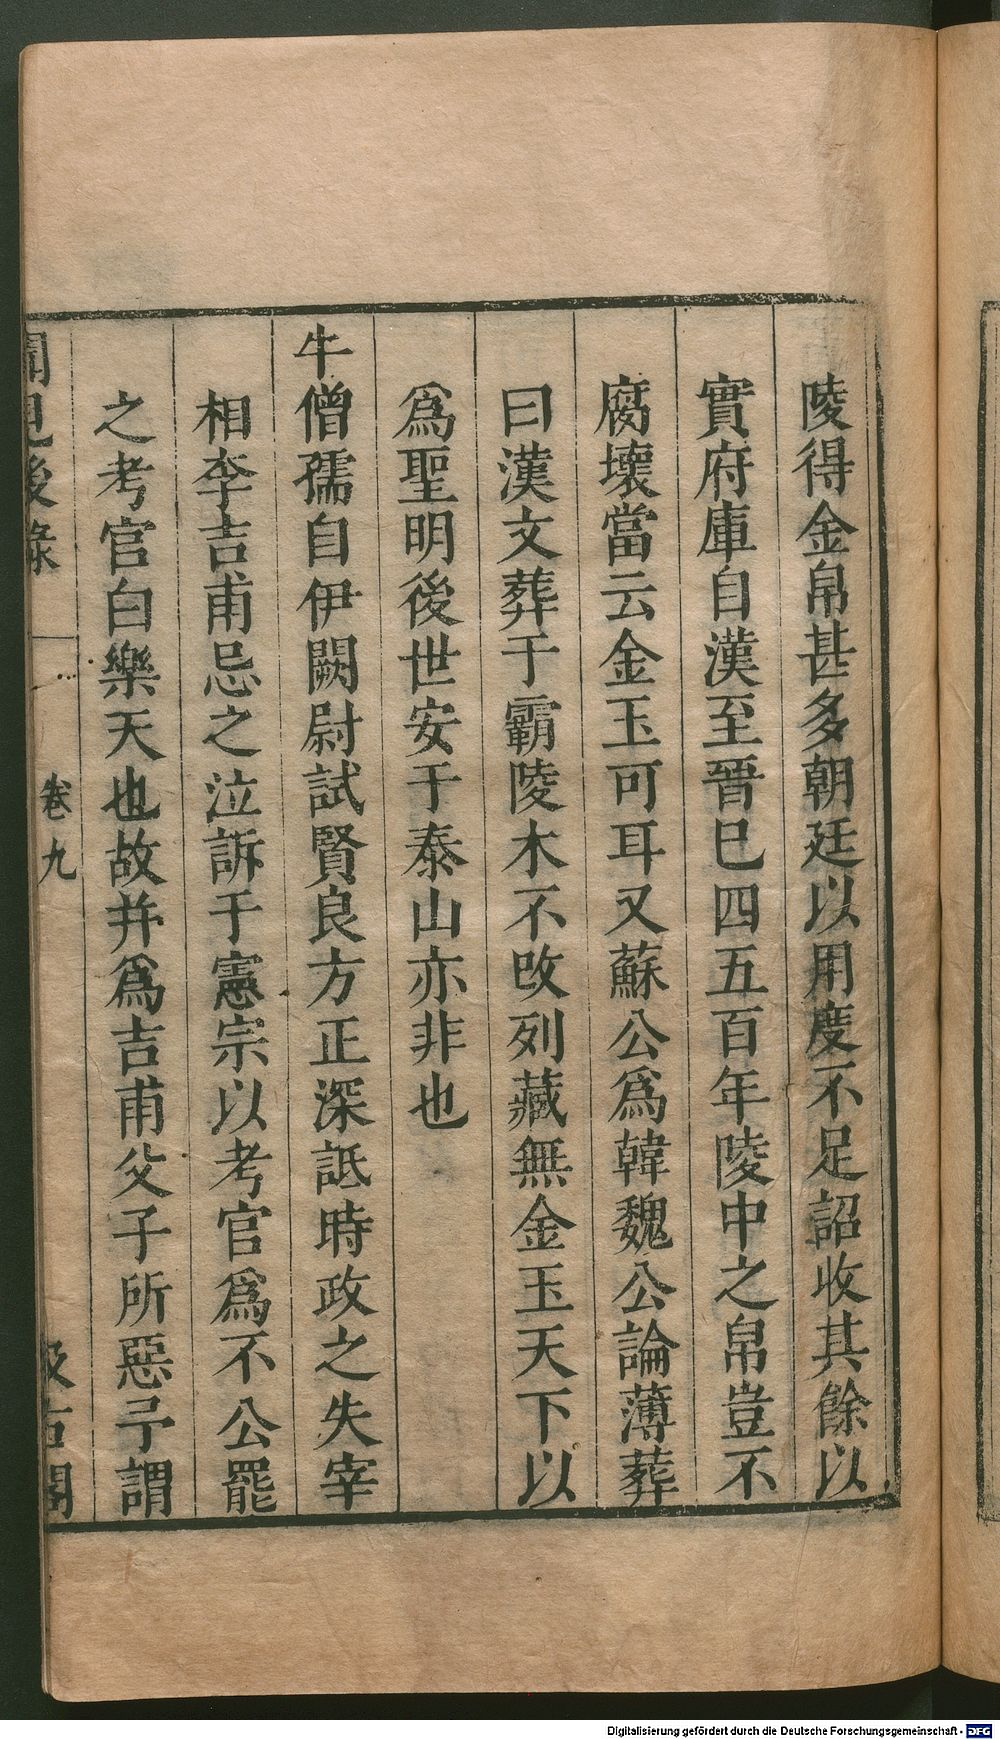 陵得金帛甚多朝廷以用度不足詔收其餘以
實府庫自漢至晉巳四五百年陵中之帛豈不
腐壞當云金玉可耳又蘇公爲韓魏公論薄葬
曰漢文葬于霸陵木不改列藏無金玉天下以
爲聖明後世安于泰山亦非也
牛僧孺自伊闕尉試賢良方正深詆時政之失宰
相李吉甫忌之泣訴于憲宗以考官爲不公罷
之考官白樂天也故并爲吉甫父子所惡予謂
聞見後錄 卷九 汲古閣
Digitalisierung gefördert durch die Deutsche Forschungsgemeinschaft - DFG